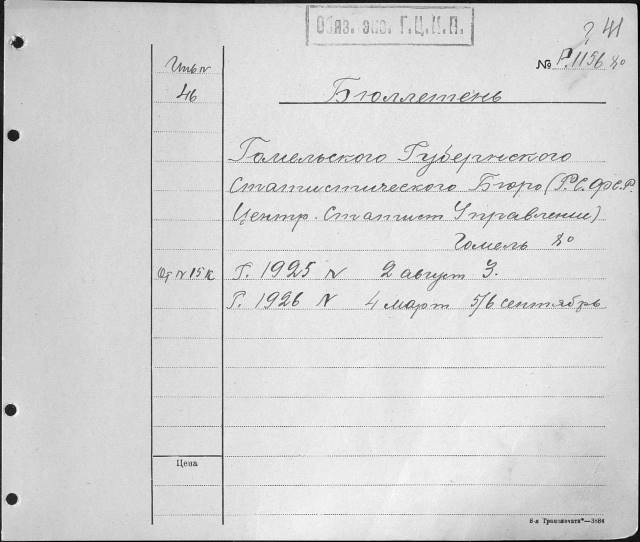 Обяз. экз. Г.Ц.К.П.
41
№ Р.1156 8°
Инв №
46
Бюллетень
Гомельского Губернского
Статистического Бюро (Р.С.Ф.С.Р.
Центр. Статист Управление)
Гомель 8°
От № 15 к
Г. 1925 № 2 август 3.
Г. 1926 № 4 март 5/6 сентябрь
Цена
8-я Транспечати"—3884